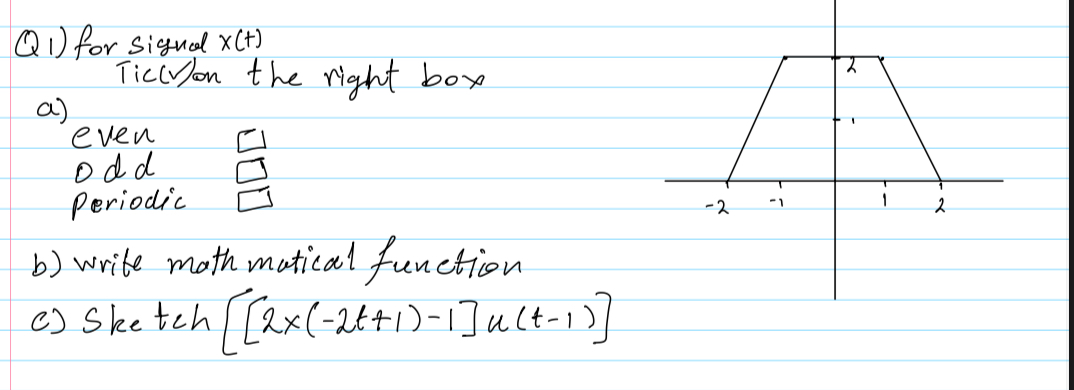 Q1) for signal x(t)
Tic(√) on the right box
a)
even
odd
Periodic
b) write mathmatical function
c) Sketch [[2x(-2t+1)-1]u(t-1)]
2
1
-2 -1 1 2